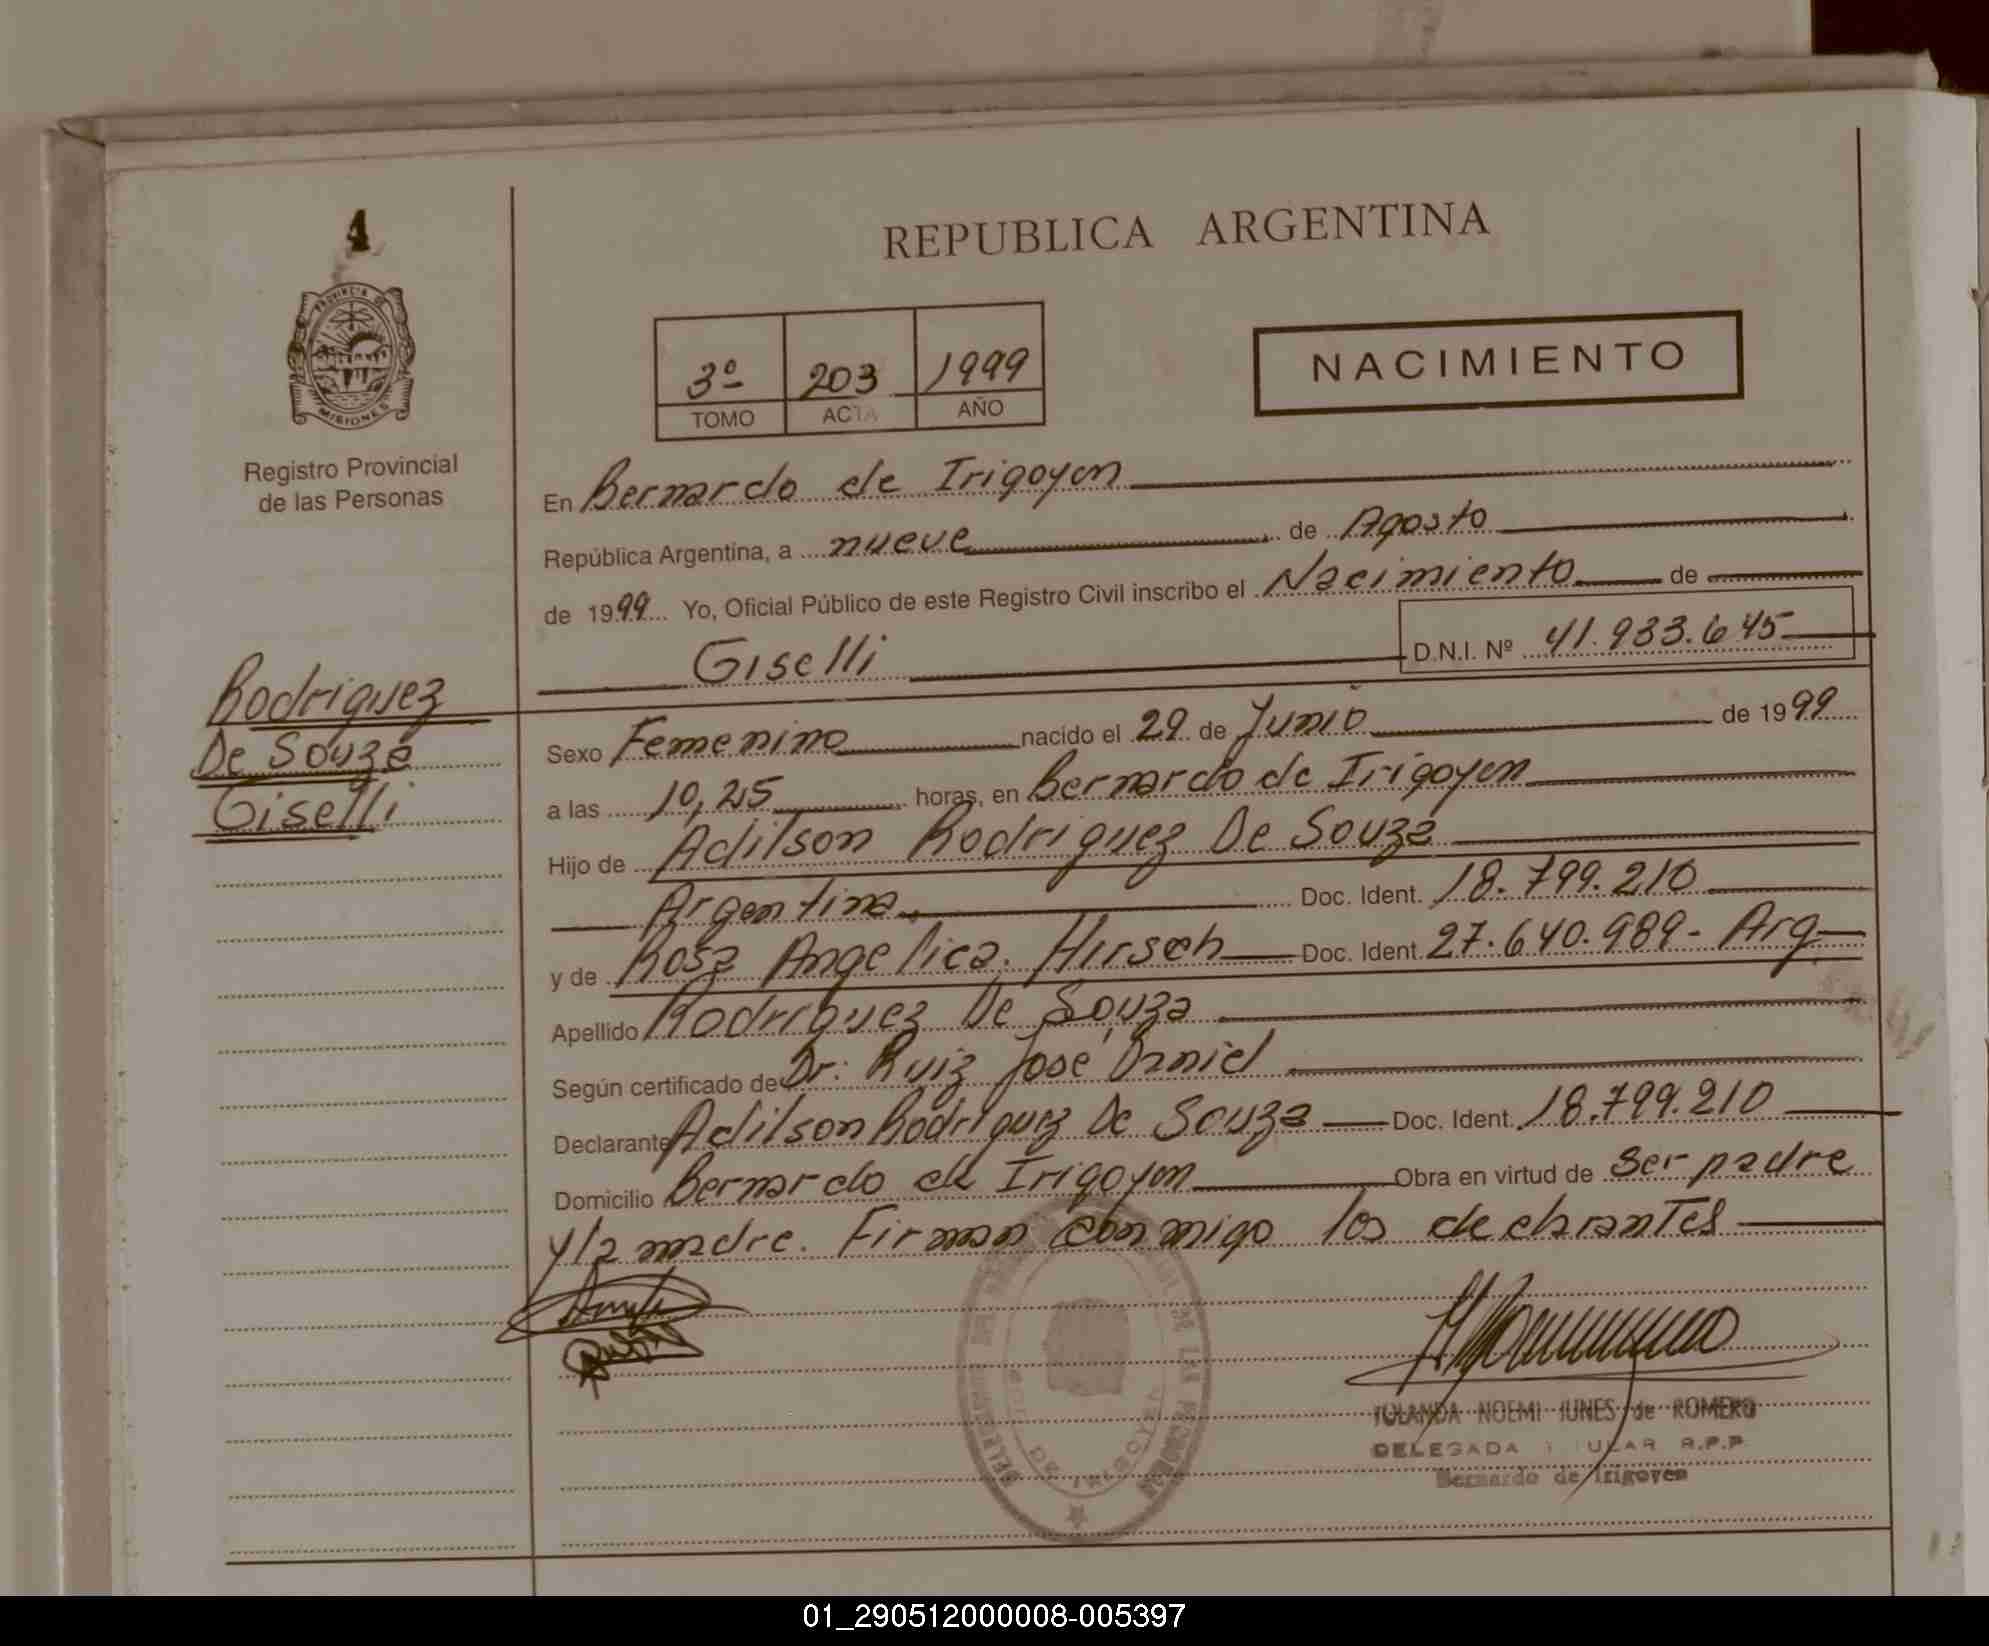 4
PROVINCIA DE
MISIONES
Registro Provincial
de las Personas
Rodriguez
De Souza
Giselli
REPUBLICA ARGENTINA
3º 203 1999
TOMO ACTA AÑO
NACIMIENTO
En Bernardo de Irigoyen
República Argentina, a nueve de Agosto
de 1999 Yo, Oficial Público de este Registro Civil inscribo el Nacimiento de
Giselli D.N.I. Nº 41.933.645
Sexo Femenino nacido el 29 de Junio de 1999
a las 10,25 horas, en Bernardo de Irigoyen
Hijo de Adilson Rodriguez De Souza
Argentina Doc. Ident. 18.799.210
y de Rosa Angelica Hirsch Doc. Ident. 27.640.989- Arg
Apellido Rodriguez De Souza
Según certificado de Dr: Ruiz José Daniel
Declarante Adilson Rodriguez De Souza Doc. Ident. 18.799.210
Domicilio Bernardo de Irigoyen Obra en virtud de ser padre
y la madre. Firman conmigo los declarantes
YOLANDA NOEMI IUNES de ROMERO
DELEGADA R.P.P
Bernardo de Irigoyen
01_290512000008-005397